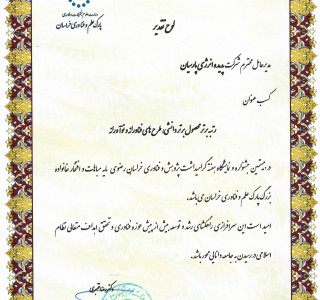 وزارت علوم، تحقیقات و فناوری
پارک علم و فناوری خراسان
لوح تقدیر
مدیرعامل محترم شرکت پدیده انرژی پارسیان
کسب عنوان
رتبه برتر محصول برتر دانشی، طرح های فناورانه و نوآورانه
در بیستمین جشنواره و نمایشگاه هفته گرامیداشت پژوهش و فناوری خراسان رضوی مایه مباهات و افتخار خانواده
بزرگ پارک علم و فناوری خراسان می‌باشد.
امید است این سرافرازی راهگشای رشد و توسعه بیش از پیش حوزه فناوری و تحقق اهداف متعالی نظام
اسلامی در رسیدن به جامعه دانایی محور باشد.